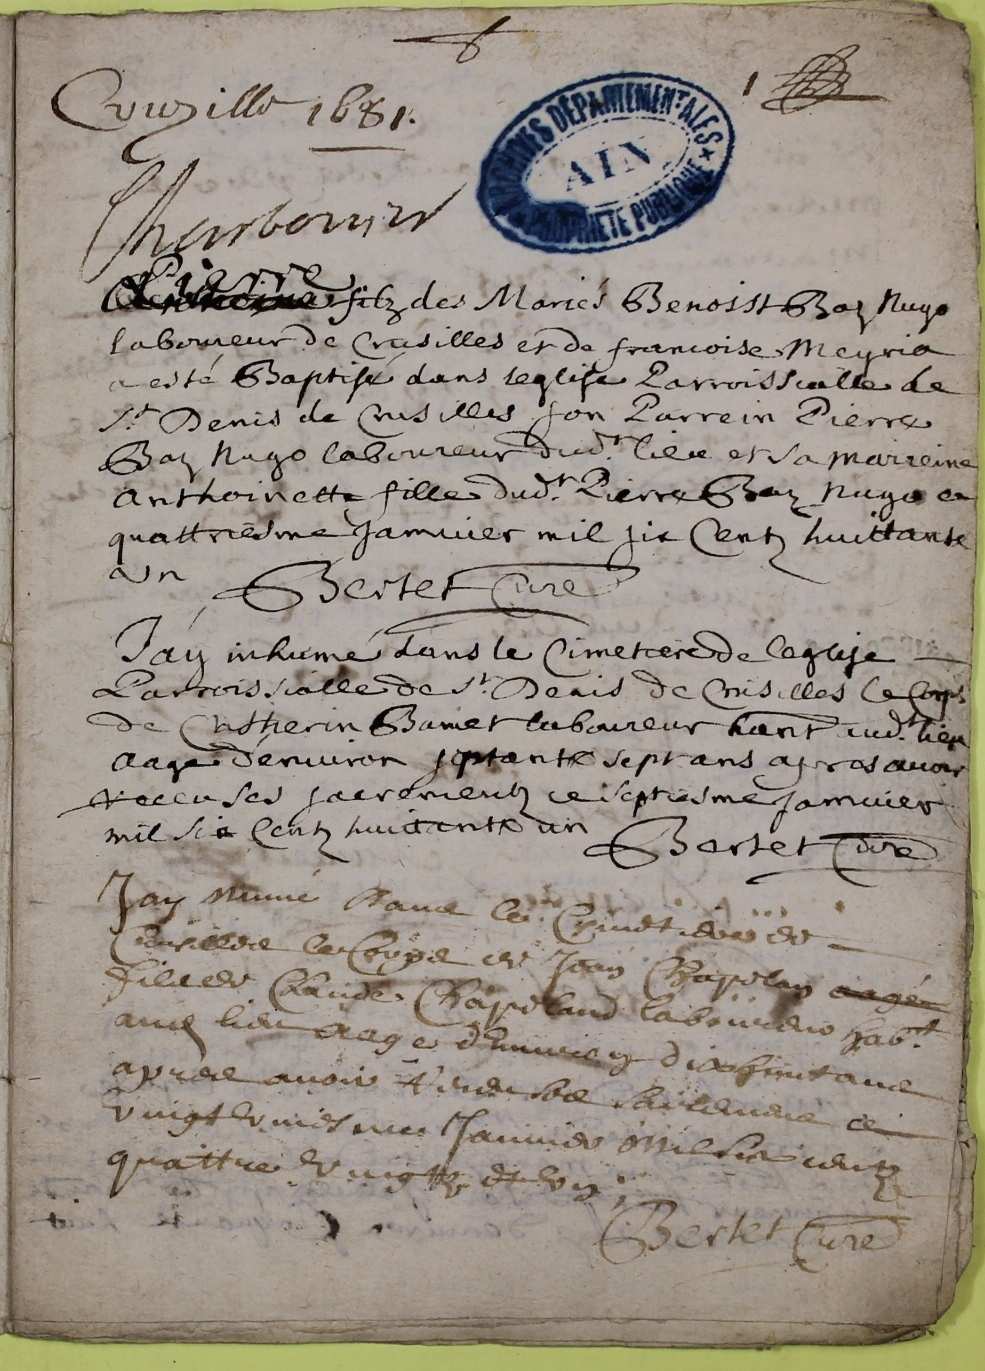 1
Cruzille 1681.
ARCHIVES DÉPARTEMENTALES
AIN
PROPRIÉTÉ PUBLIQUE
Charbonier
Pierre filz des Mariés Benoist Boz Nugo
laboureur de Crusilles et de francoise Meyria
a esté Baptisé dans leglise Parroissialle de
St. Denis de Crusilles son Parrein Pierre
Boz Nugo laboureur dudt. lieu et sa marreine
anthoinette fille dudt. Pierre Boz Nugo ce
quattriesme Janvier mil six Centz huittante
un Bertet Curé
J'ay inhumé dans le Cimetiere de leglise
Parroissialle de St. Denis de Crusilles le Corps
de Catherin laboureur hant audt. lieu
aagé d'enuiron septante sept ans apres auoir
receu ses sacrementz ce septiesme Janvier
mil six Centz huittante un Bertet Curé
Jay dans le Cimetiere de
Crusilles le Corps de Jean Chapelan
fils de Claude Chapeland laboureur habt.
aud lieu aagé d'enuiron dixhuit ans
apres auoir receu ses ce
vingt Janvier mil six centz
quattre vingtz et un
Bertet Curé